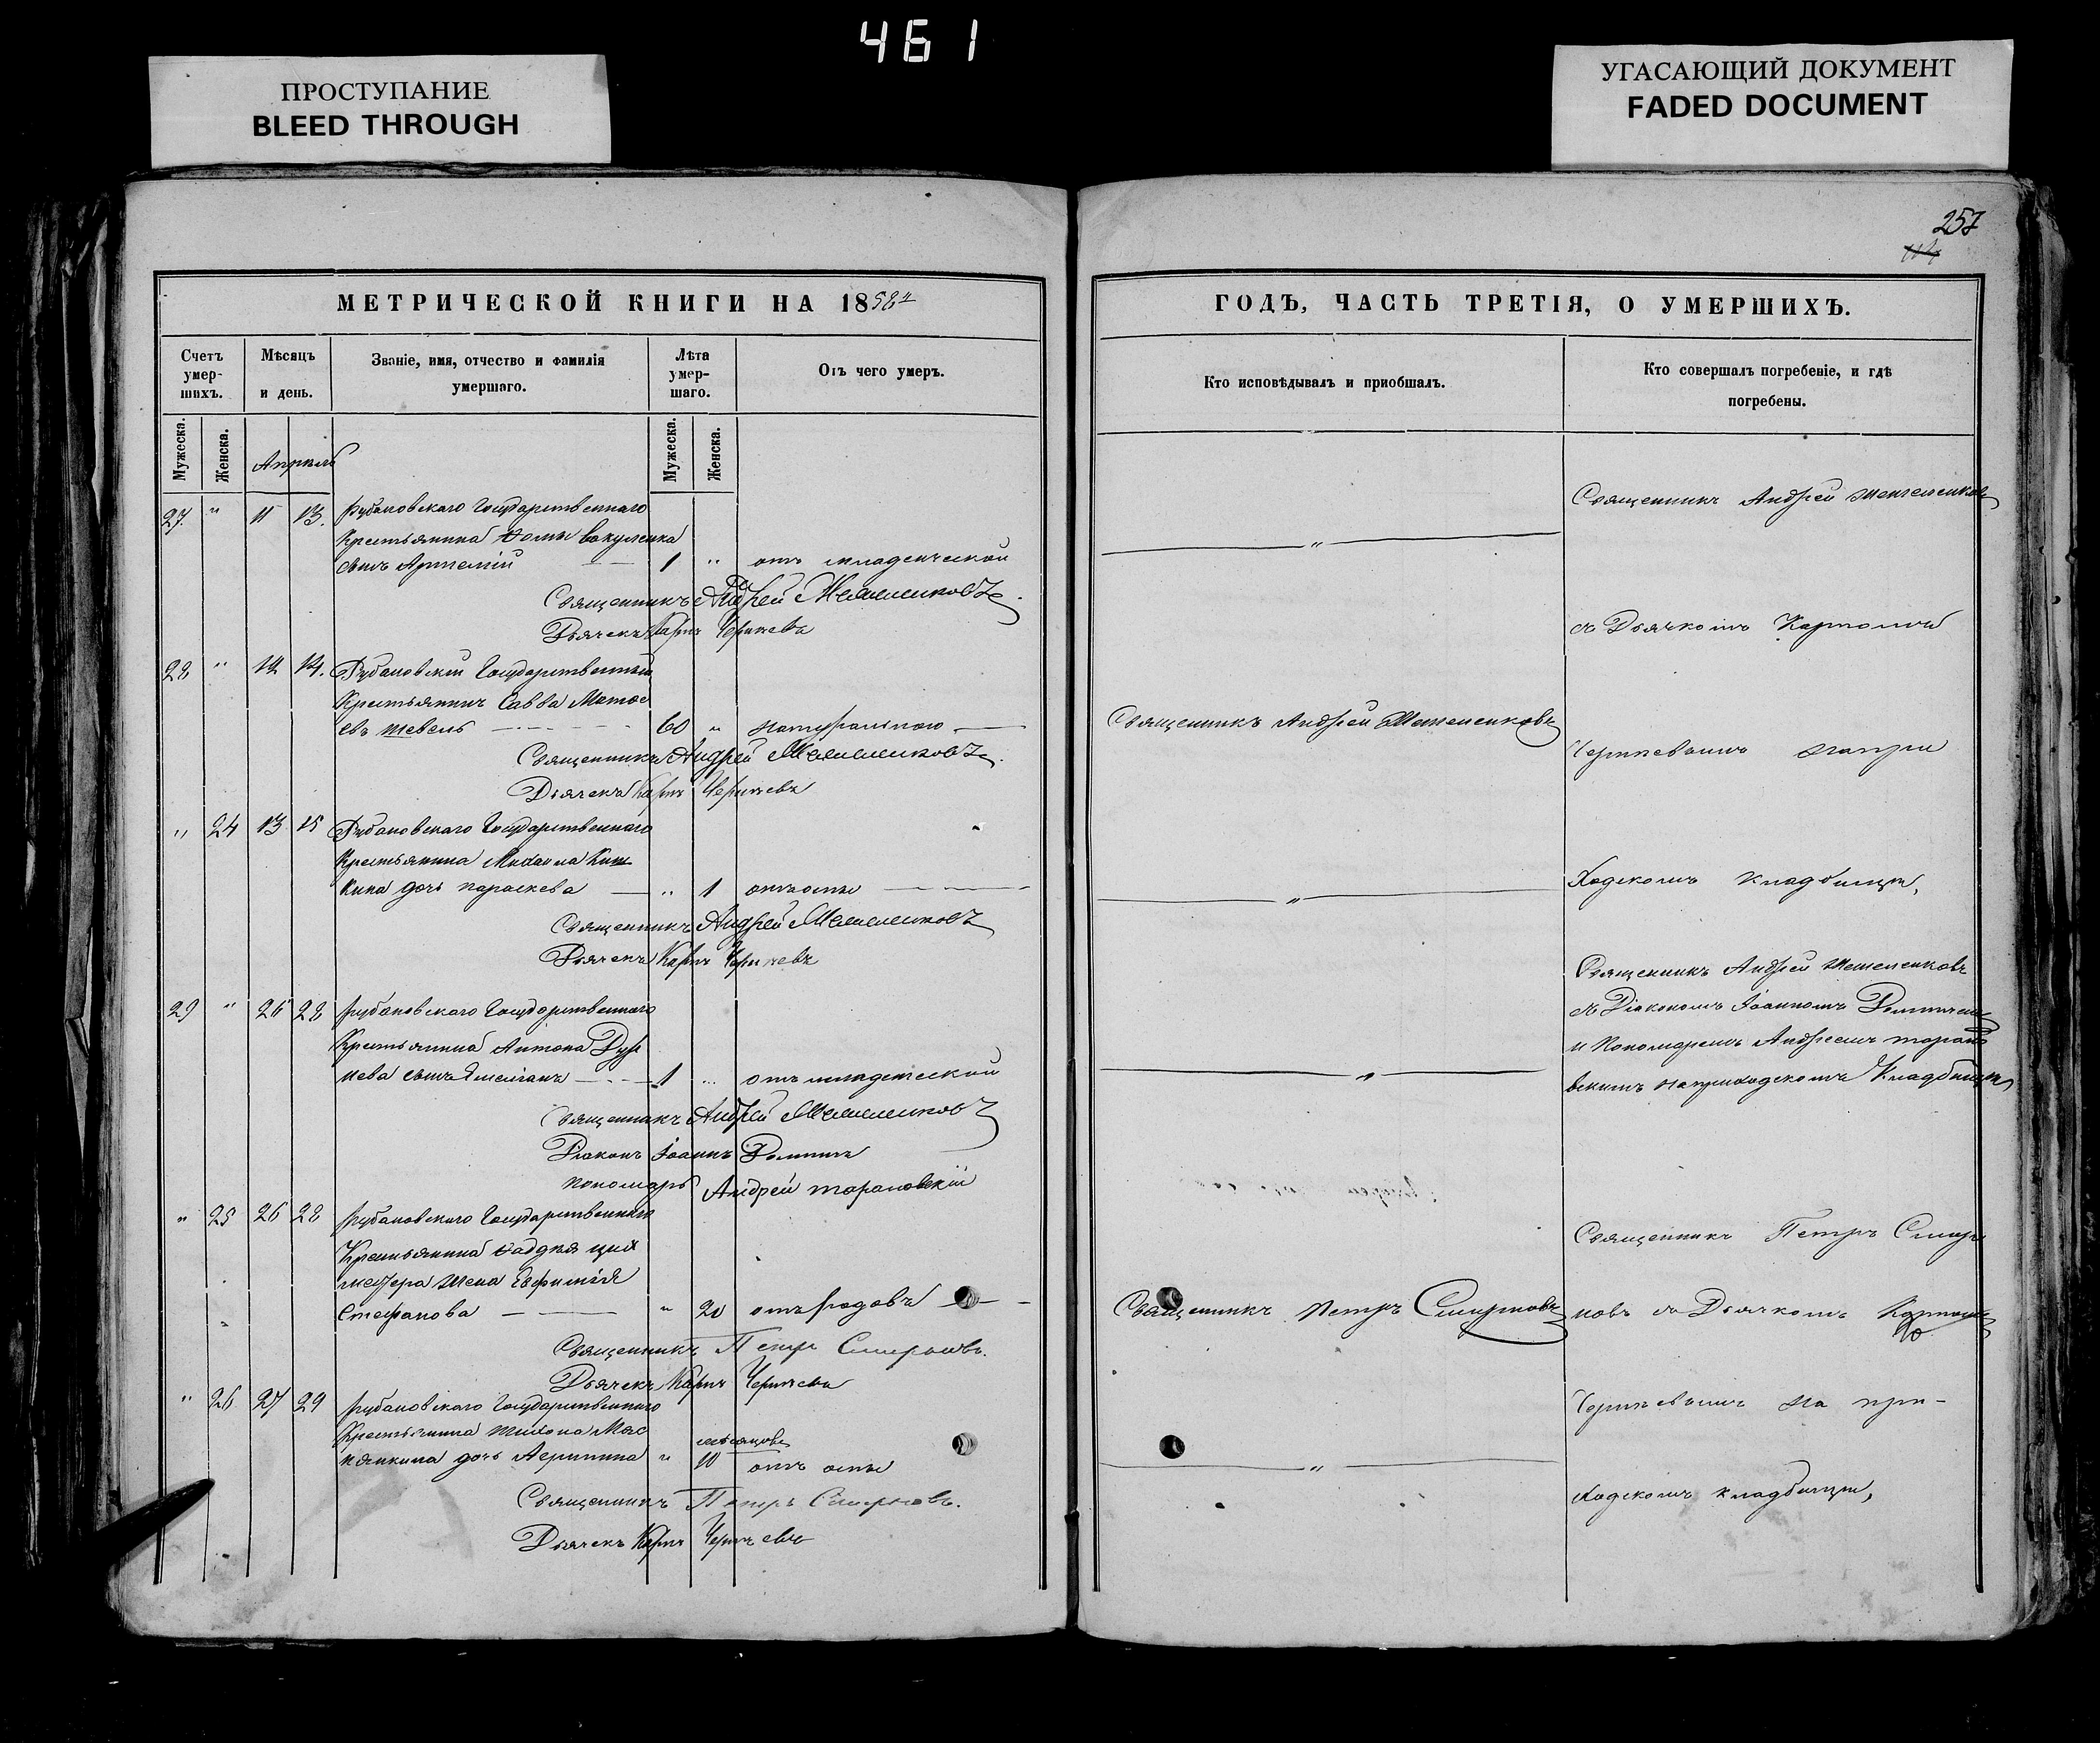 461
ПРОСТУПАНИЕ
BLEED THROUGH
УГАСАЮЩИЙ ДОКУМЕНТ
FADED DOCUMENT
257
МЕТРИЧЕСКОЙ КНИГИ НА 1858й
Счетъ умер-шихъ.
Мѣсяцъ и день.
Званіе, имя, отчество и фамилія умершаго.
Лѣта умер-шаго.
Отъ чего умеръ.
Мужеска.
Женска.
Апрѣль
Мужеска.
Женска.
27. " 11 13. Рубановскаго Государственнаго
Крестьянина Фомы Вакуленка
сынъ Артемій — 1 " отъ младенческой
Священникъ Андрей
Дьячекъ Карпъ
28 " 12 14. Рубановскій Государственный
Крестьянинъ Савва Матѳе
евъ Шевель — 60 " натуральною —
Священникъ Андрей
Дьячекъ Карпъ
" 24 13 15 Рубановскаго Государственнаго
Крестьянина
дочь Параскева — " 1 отъ оспы —
Священникъ Андрей
Дьячекъ Карпъ
29 " 26 28 Рубановскаго Государственнаго
Крестьянина Антона
сынъ — 1 " отъ младенческой
Священникъ Андрей
Діаконъ Іоаннъ
Пономарь Андрей Тарановскій
" 25 26 28 Рубановскаго Государственнаго
Крестьянина
жена Евфимія
Стефанова — " 20 отъ родовъ —
Священникъ Петръ Смирновъ.
Дьячекъ Карпъ
" 26 27 29 Рубановскаго Государственнаго
Крестьянина
мѣсяцовъ
дочь Агрипина " 10 отъ оспы
Священникъ Петръ Смирновъ.
Дьячекъ Карпъ
ГОДЪ, ЧАСТЬ ТРЕТІЯ, О УМЕРШИХЪ.
Кто исповѣдывалъ и пріобщалъ.
Кто совершалъ погребеніе, и гдѣ погребены.
Священникъ Андрей
— " —
съ Дьячкомъ Карпомъ
Священникъ Андрей
на при
ходскомъ кладбищѣ,
— " —
Священникъ Андрей
съ Діакономъ Іоанномъ
и Пономаремъ Андреемъ Тарано
— " —
вскимъ на приходскомъ кладбищѣ
Священникъ Петръ Смир
Священникъ Петръ Смирновъ
новъ съ Дьячкомъ Карпомъ
на при-
— " —
ходскомъ кладбищѣ,